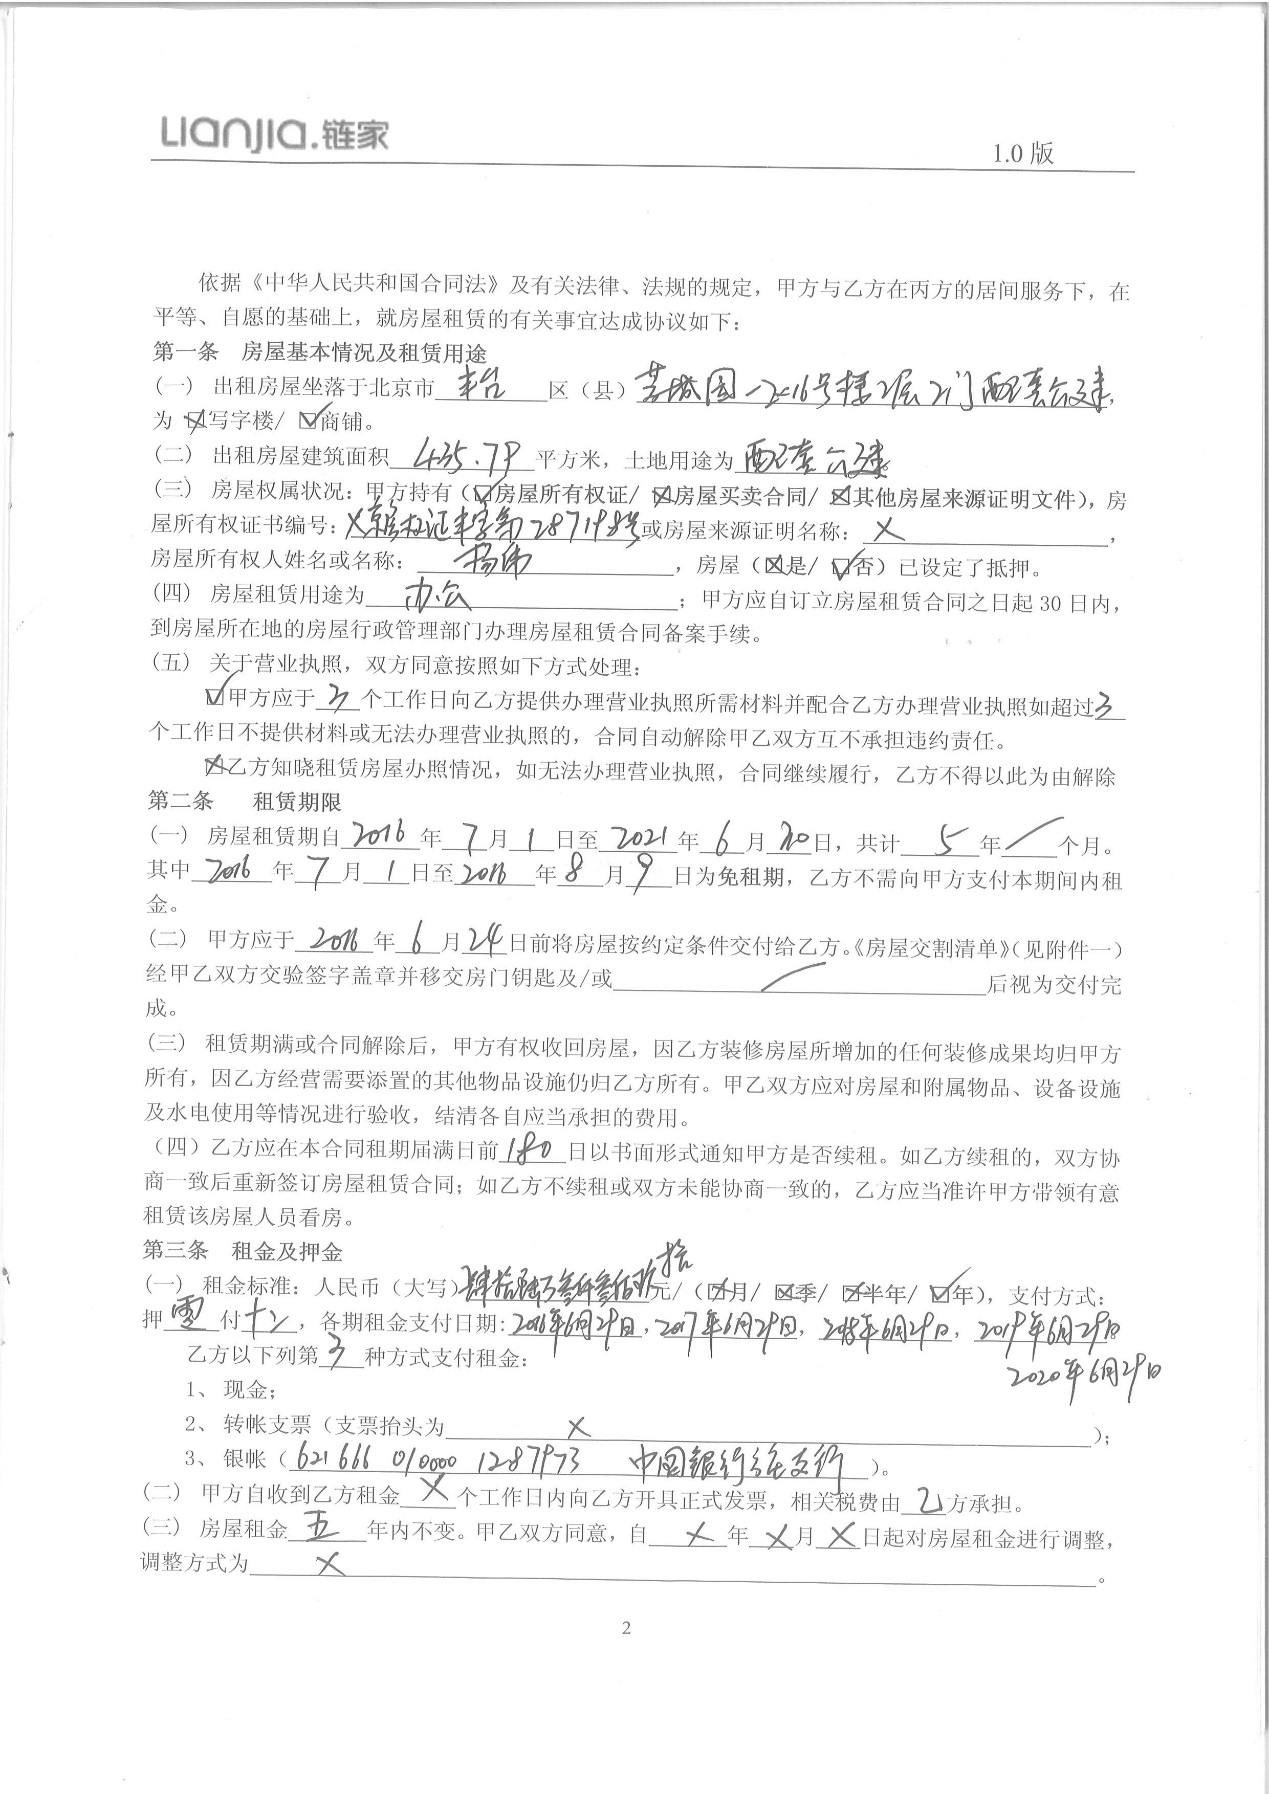 Lianjia.链家
1.0 版
依据《中华人民共和国合同法》及有关法律、法规的规定，甲方与乙方在丙方的居间服务下，在
平等、自愿的基础上，就房屋租赁的有关事宜达成协议如下：
第一条 房屋基本情况及租赁用途
(一) 出租房屋坐落于北京市 丰台 区（县）芳城园一区16号楼2层2门配套公建，
为 ☒写字楼/ ☑商铺。
(二) 出租房屋建筑面积 435.79 平方米，土地用途为 配套公建
(三) 房屋权属状况：甲方持有（☑房屋所有权证/ ☒房屋买卖合同/ ☒其他房屋来源证明文件），房
屋所有权证书编号：X京房权证丰字第287198号或房屋来源证明名称：X，
房屋所有权人姓名或名称：杨伟，房屋（☒是/ ☑否）已设定了抵押。
(四) 房屋租赁用途为 办公；甲方应自订立房屋租赁合同之日起 30 日内，
到房屋所在地的房屋行政管理部门办理房屋租赁合同备案手续。
(五) 关于营业执照，双方同意按照如下方式处理：
☑甲方应于 3 个工作日向乙方提供办理营业执照所需材料并配合乙方办理营业执照如超过 3
个工作日不提供材料或无法办理营业执照的，合同自动解除甲乙双方互不承担违约责任。
☒乙方知晓租赁房屋办照情况，如无法办理营业执照，合同继续履行，乙方不得以此为由解除
第二条 租赁期限
(一) 房屋租赁期自 2016 年 7 月 1 日至 2021 年 6 月 30 日，共计 5 年 / 个月。
其中 2016 年 7 月 1 日至 2016 年 8 月 9 日为免租期，乙方不需向甲方支付本期间内租
金。
(二) 甲方应于 2016 年 6 月 24 日前将房屋按约定条件交付给乙方。《房屋交割清单》（见附件一）
经甲乙双方交验签字盖章并移交房门钥匙及/或 / 后视为交付完
成。
(三) 租赁期满或合同解除后，甲方有权收回房屋，因乙方装修房屋所增加的任何装修成果均归甲方
所有，因乙方经营需要添置的其他物品设施仍归乙方所有。甲乙双方应对房屋和附属物品、设备设施
及水电使用等情况进行验收，结清各自应当承担的费用。
（四）乙方应在本合同租期届满日前 180 日以书面形式通知甲方是否续租。如乙方续租的，双方协
商一致后重新签订房屋租赁合同；如乙方不续租或双方未能协商一致的，乙方应当准许甲方带领有意
租赁该房屋人员看房。
第三条 租金及押金
(一) 租金标准：人民币（大写）肆拾 万叁仟叁佰玖拾元/（☒月/ ☒季/ ☒半年/ ☑年），支付方式：
押 零 付 十二，各期租金支付日期：2016年6月29日，2017年6月29日，2018年6月29日，2019年6月29日
2020年6月29日
乙方以下列第 3 种方式支付租金：
1、 现金；
2、 转帐支票（支票抬头为 X ）；
3、 银帐（ 621666 010000 1287973 中国银行 支行 ）。
(二) 甲方自收到乙方租金 X 个工作日内向乙方开具正式发票，相关税费由 乙 方承担。
(三) 房屋租金 五 年内不变。甲乙双方同意，自 X 年 X 月 X 日起对房屋租金进行调整，
调整方式为 X 。
2